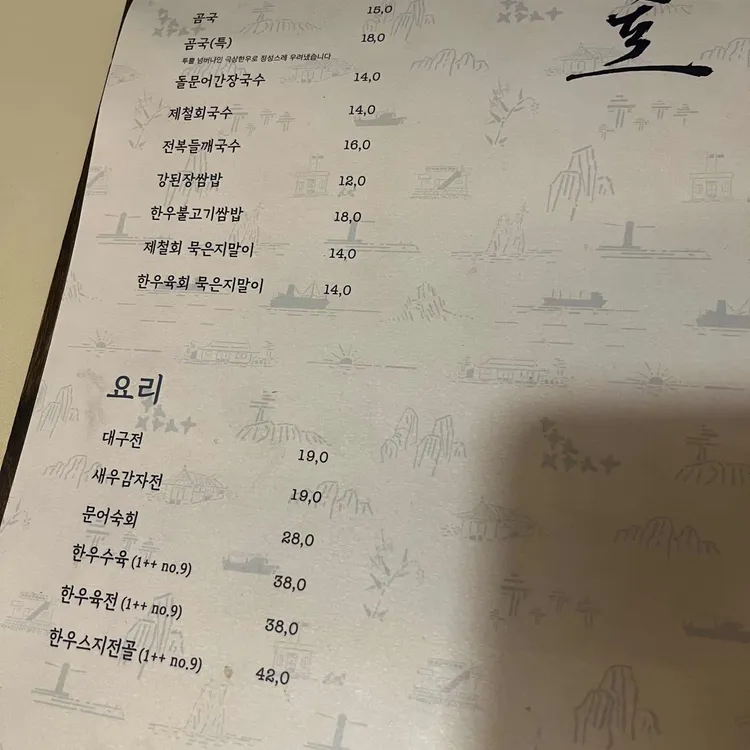 곰국 15,0
곰국(특) 18,0
투뿔 넘버나인 극상한우로 정성스레 우려냈습니다
돌문어간장국수 14,0
제철회국수 14,0
전복들깨국수 16,0
강된장쌈밥 12,0
한우불고기쌈밥 18,0
제철회 묵은지말이 14,0
한우육회 묵은지말이 14,0
요리
대구전 19,0
새우감자전 19,0
문어숙회 28,0
한우수육 (1++ no.9) 38,0
한우육전 (1++ no.9) 38,0
한우스지전골 (1++ no.9) 42,0